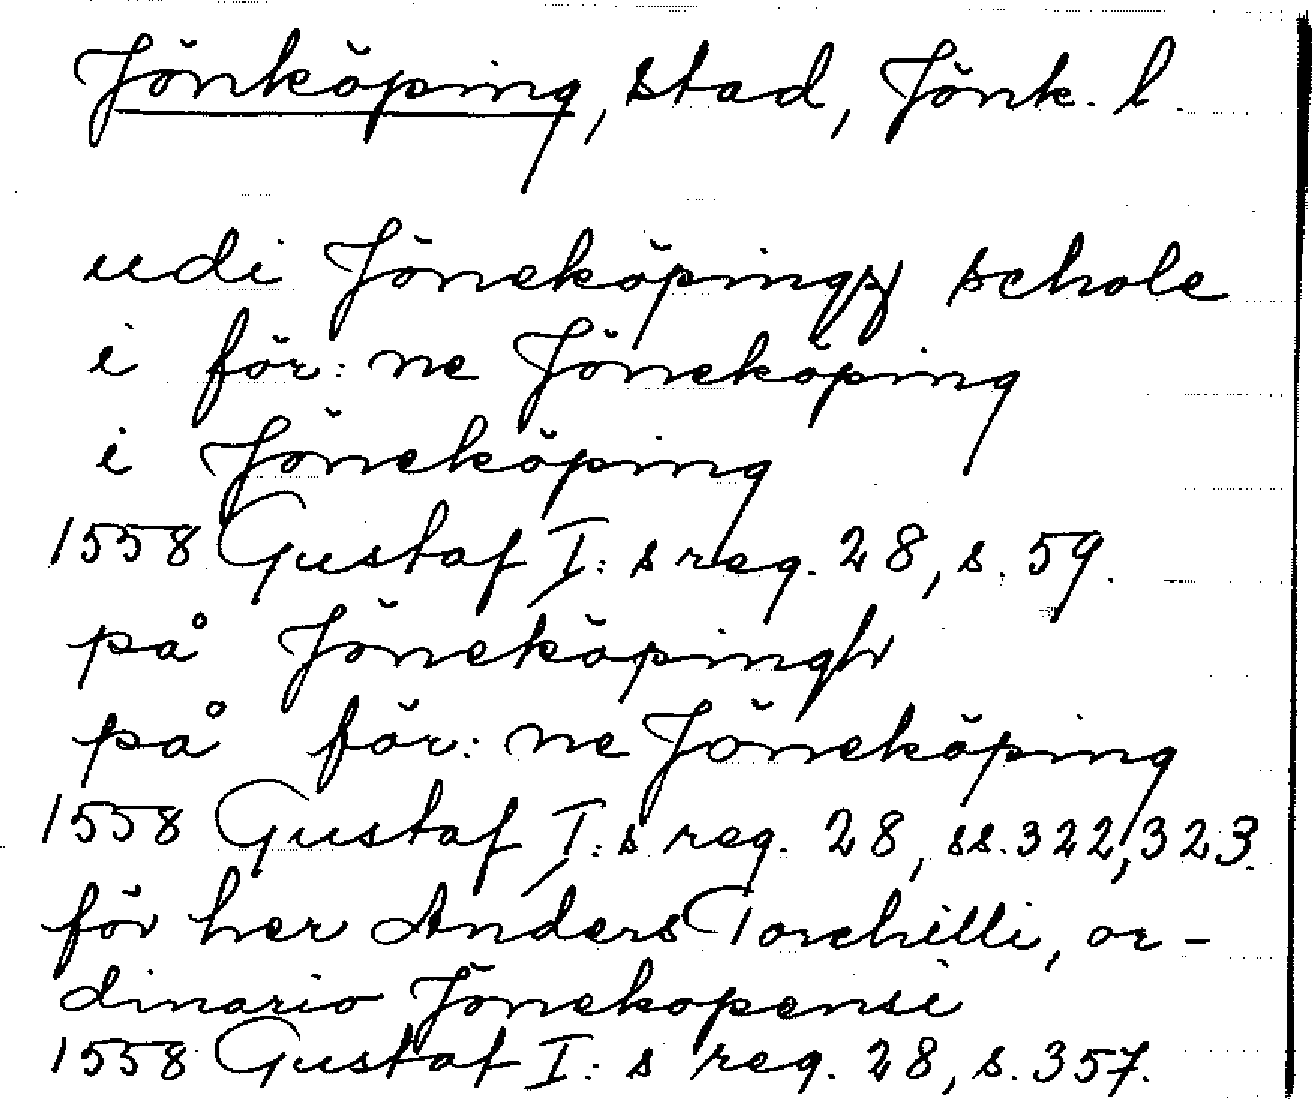 Jönköping, stad, Jönk. l.
udi Jönekõpings schole
i för: ne Jönekõping
i Jönekõping
1558 Gustaf I: s reg. 28, s. 59.
på
på för: ne Jönekõping
1558 Gustaf I: s reg. 28, ss. 322, 323.
för her Anders Torchilli, or-
dinario Jönekopensi
1558 Gustaf I: s reg. 28, s. 357.